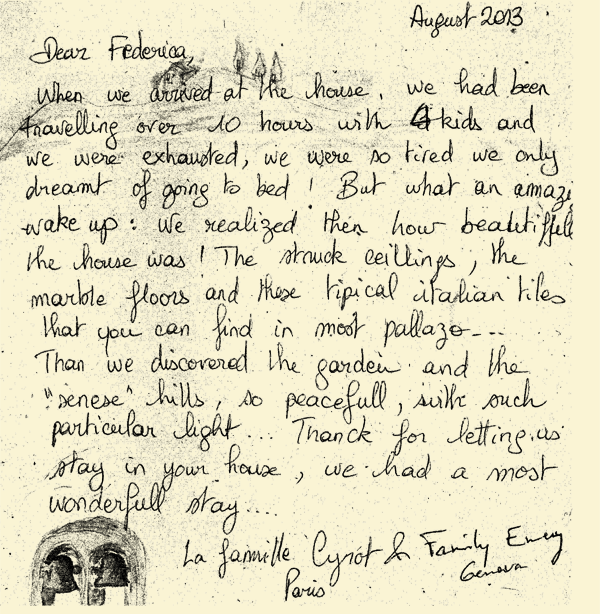 August 2013
Dear Federica,
When we arrived at the house, we had been
travelling over 10 hours with 4 kids and
we were exhausted, we were so tired we only
dreamt of going to bed ! But what an amazi
wake up : We realized then how beautifull
the house was ! The struck ceillings, the
marble floors and these tipical italian tiles
that you can find in most pallazo ---
Than we discovered the garden and the
"senese" hills, so peacefull, with such
particular light ... Thanck for letting us
stay in your house, we had a most
wonderfull stay....
La famille Cyrot & Family Emery
Paris Geneva